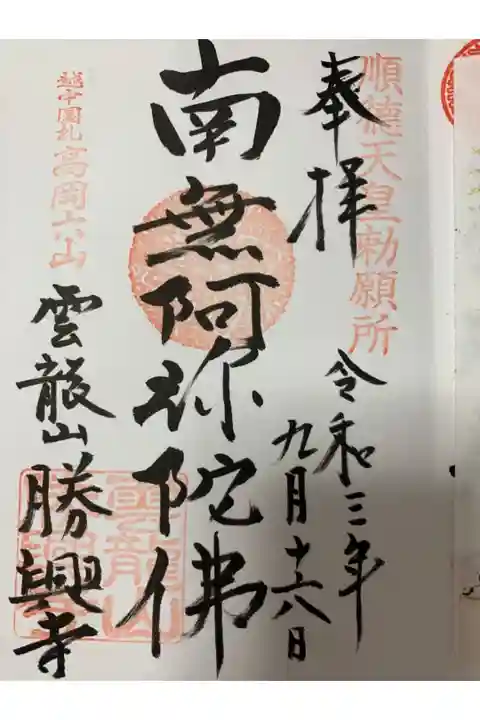 順徳天皇勅願所
奉拝
令和三年
九月十六日
南無阿弥陀佛
越中國札 高岡六山
雲龍山 勝興寺